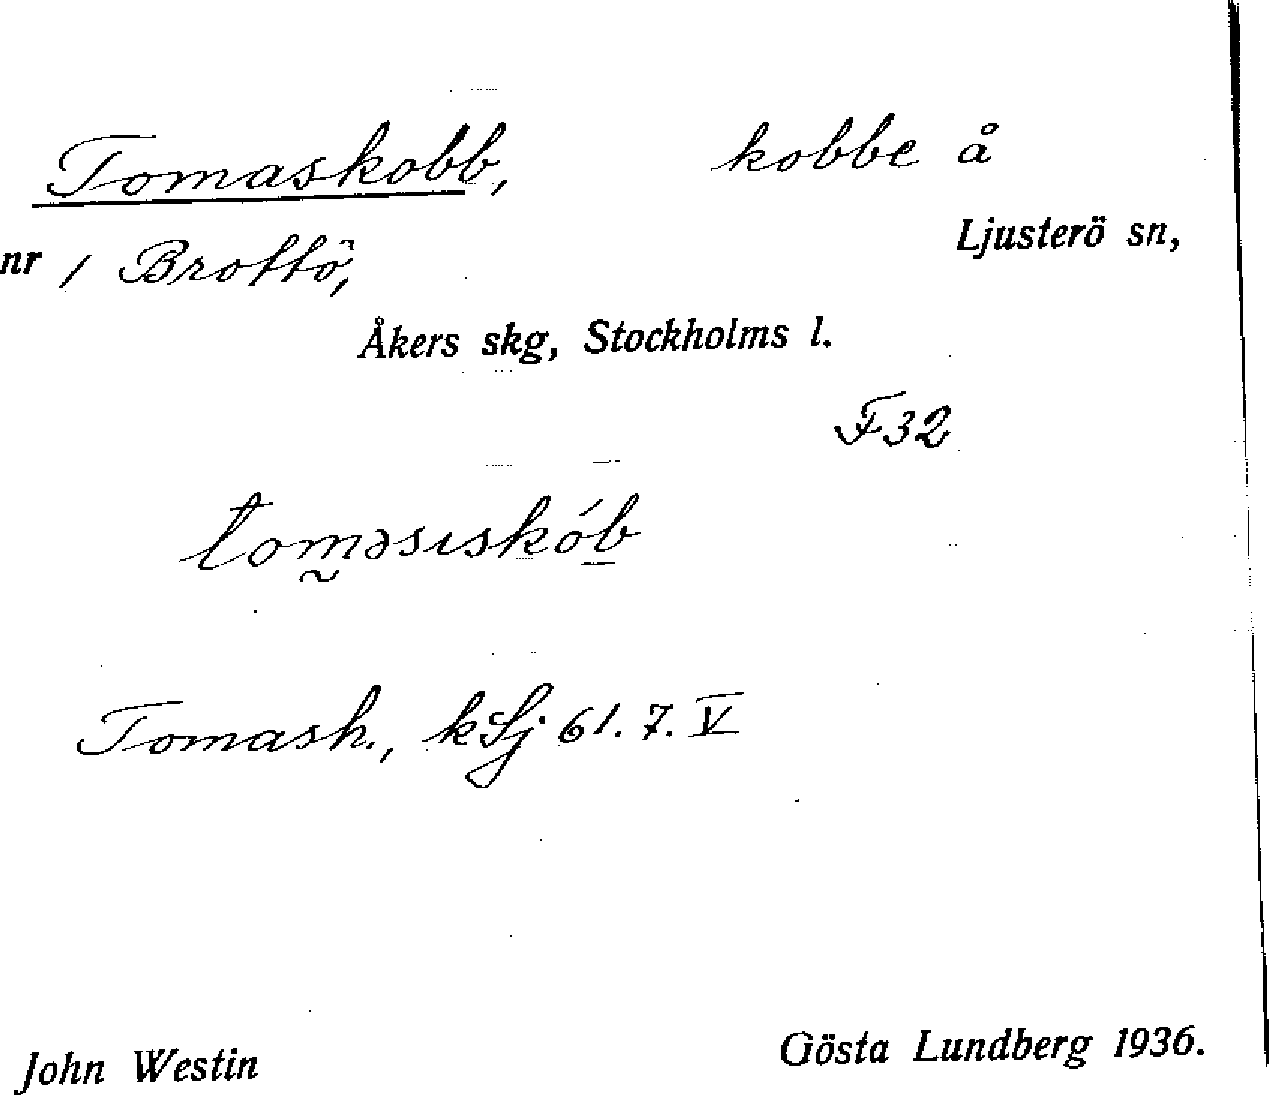 Tomaskobb, kobbe å
Ljusterö sn,
nr 1 Brottö,
Åkers skg, Stockholms l.
F32
toməsıskób
Tomash., kLj 61.7.V
John Westin Gösta Lundberg 1936.